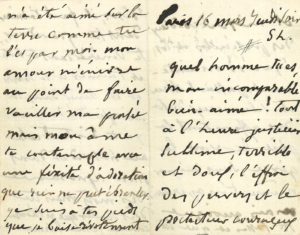 n'a été aimé sur la
terre comme tu
l'es par moi. mon
amour m'enivre
au point de faire
vaciller ma pensée
mais mon âme
te contemple avec
une fixité d'adoration
que rien ne peut ébranler.
je suis à tes pieds
que je baise dévotement
Paris 16 mars Jeudi soir
5h.
quel homme tu es
mon incomparable
bien-aimé! tout
à l'heure justicier
sublime, terrible
et doux, l'effroi
des pervers et le
protecteur courageux